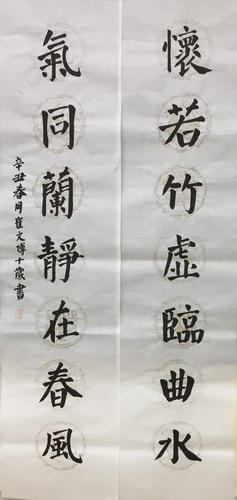 懷若竹虛臨曲水
氣同蘭靜在春風
辛丑春月崔文博十歲書